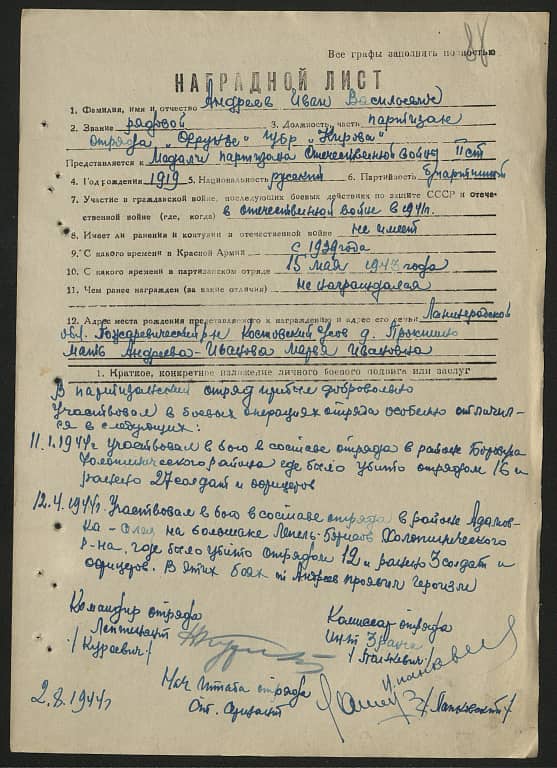 88
Все графы заполнить полностью
НАГРАДНОЙ ЛИСТ
1. Фамилия, имя и отчество Андреев Иван Васильевич
2. Звание рядовой 3. Должность, часть партизан
отряда „Фрунзе“ п/бр „Кирова“
Представляется к Медали партизана Отечественной войны II ст
4. Год рождения 1919 5. Национальность русский 6. Партийность б/партийный
7. Участие в гражданской войне, последующих боевых действиях по защите СССР и отече-
ственной войне (где, когда) в отечественной войне в 1941г.
8. Имеет ли ранения и контузии в отечественной войне не имеет
9. С какого времени в Красной Армии с 1939 года
10. С какого времени в партизанском отряде 15 мая 1943 года
11. Чем ранее награжден (за какие отличия) не награждался
12. Адрес места рождения представляемого к награждению и адрес его семьи Ленинградской
обл. Пожаревический р-н Костовский с/сов д.
мать Андреева-Иванова Мария Ивановна
1. Краткое, конкретное изложение личного боевого подвига или заслуг
В партизанский отряд прибыл добровольно
Участвовал в боевых операциях отряда особенно отличил-
ся в следующих:
11.1.1944г участвовал в бою в составе отряда в районе
Холопинического района где было убито отрядом 16 и
ранено 27 солдат и офицеров
12.4.1944г. Участвовал в бою в составе отряда в районе Адамов-
ка - на большаке Лепель-Борисов Холопинического
р-на, где было убито отрядом 12 и ранено 3 солдат и
офицеров. В этих боях т Андреев проявил героизм
Командир отряда
Лейтенант
/Куревич/
Комиссар отряда
Инт 3 ранга
Нач штаба отряда
Ст. сержант
2.8.1944г